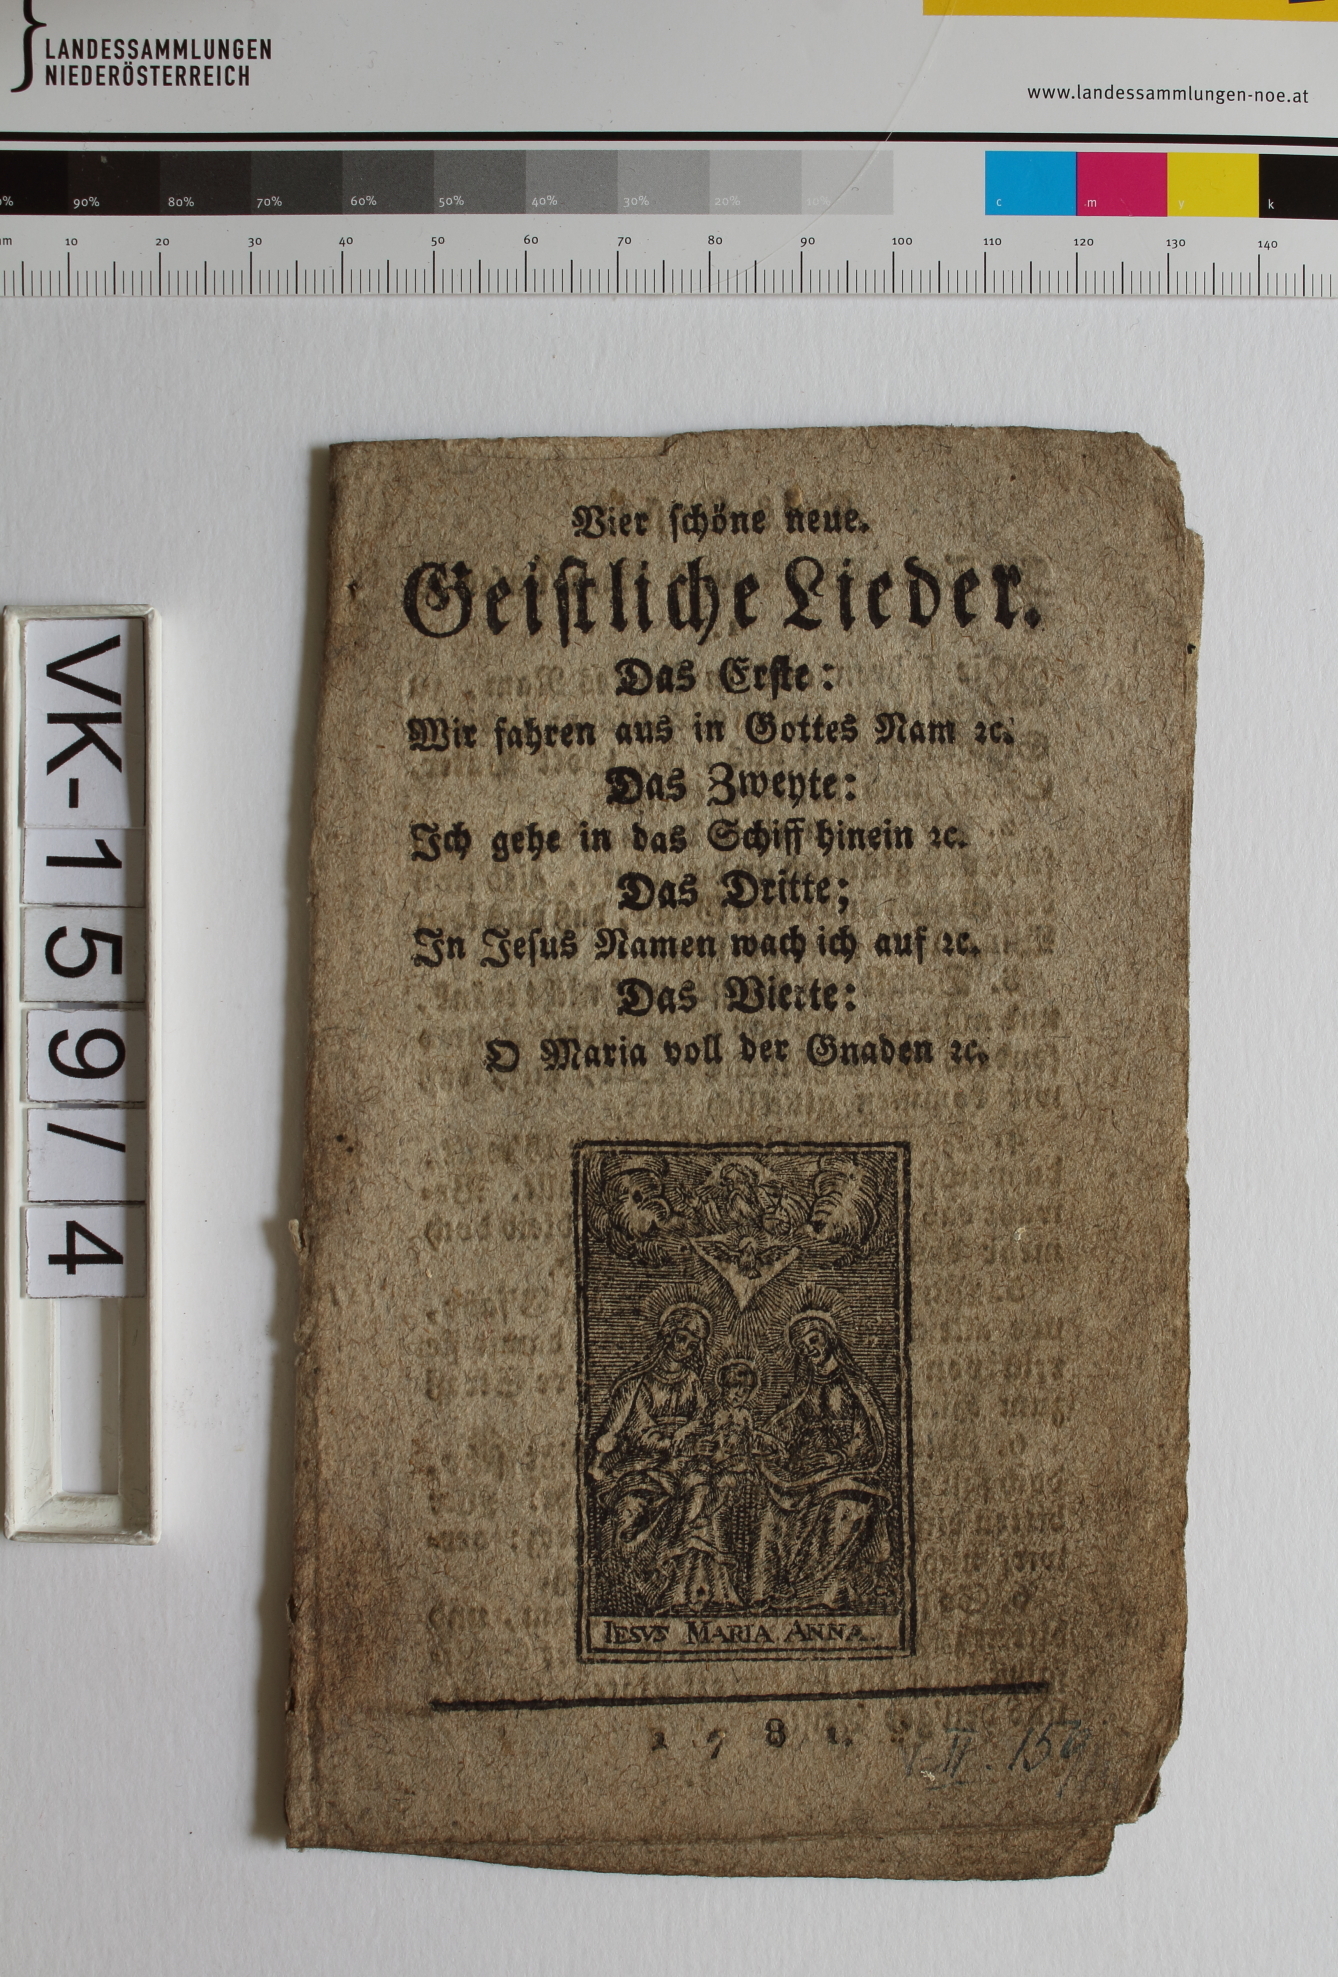 LANDESSAMMLUNGEN
NIEDERÖSTERREICH
www.landessammlungen-noe.at
90% 80% 70% 60% 50% 40% 30% 20% 10% c m y k
10 20 30 40 50 60 70 80 90 100 110 120 130 140
VK-159/4
Vier schöne neue.
Geistliche Lieder.
Das Erste:
Wir fahren aus in Gottes Nam ꝛc.
Das Zweyte:
Ich gehe in das Schiff hinein ꝛc.
Das Dritte;
In Jesus Namen wach ich auf ꝛc.
Das Vierte:
O Maria voll der Gnaden ꝛc.
IESVS MARIA ANNA.
1 7 8 1.
II. 154